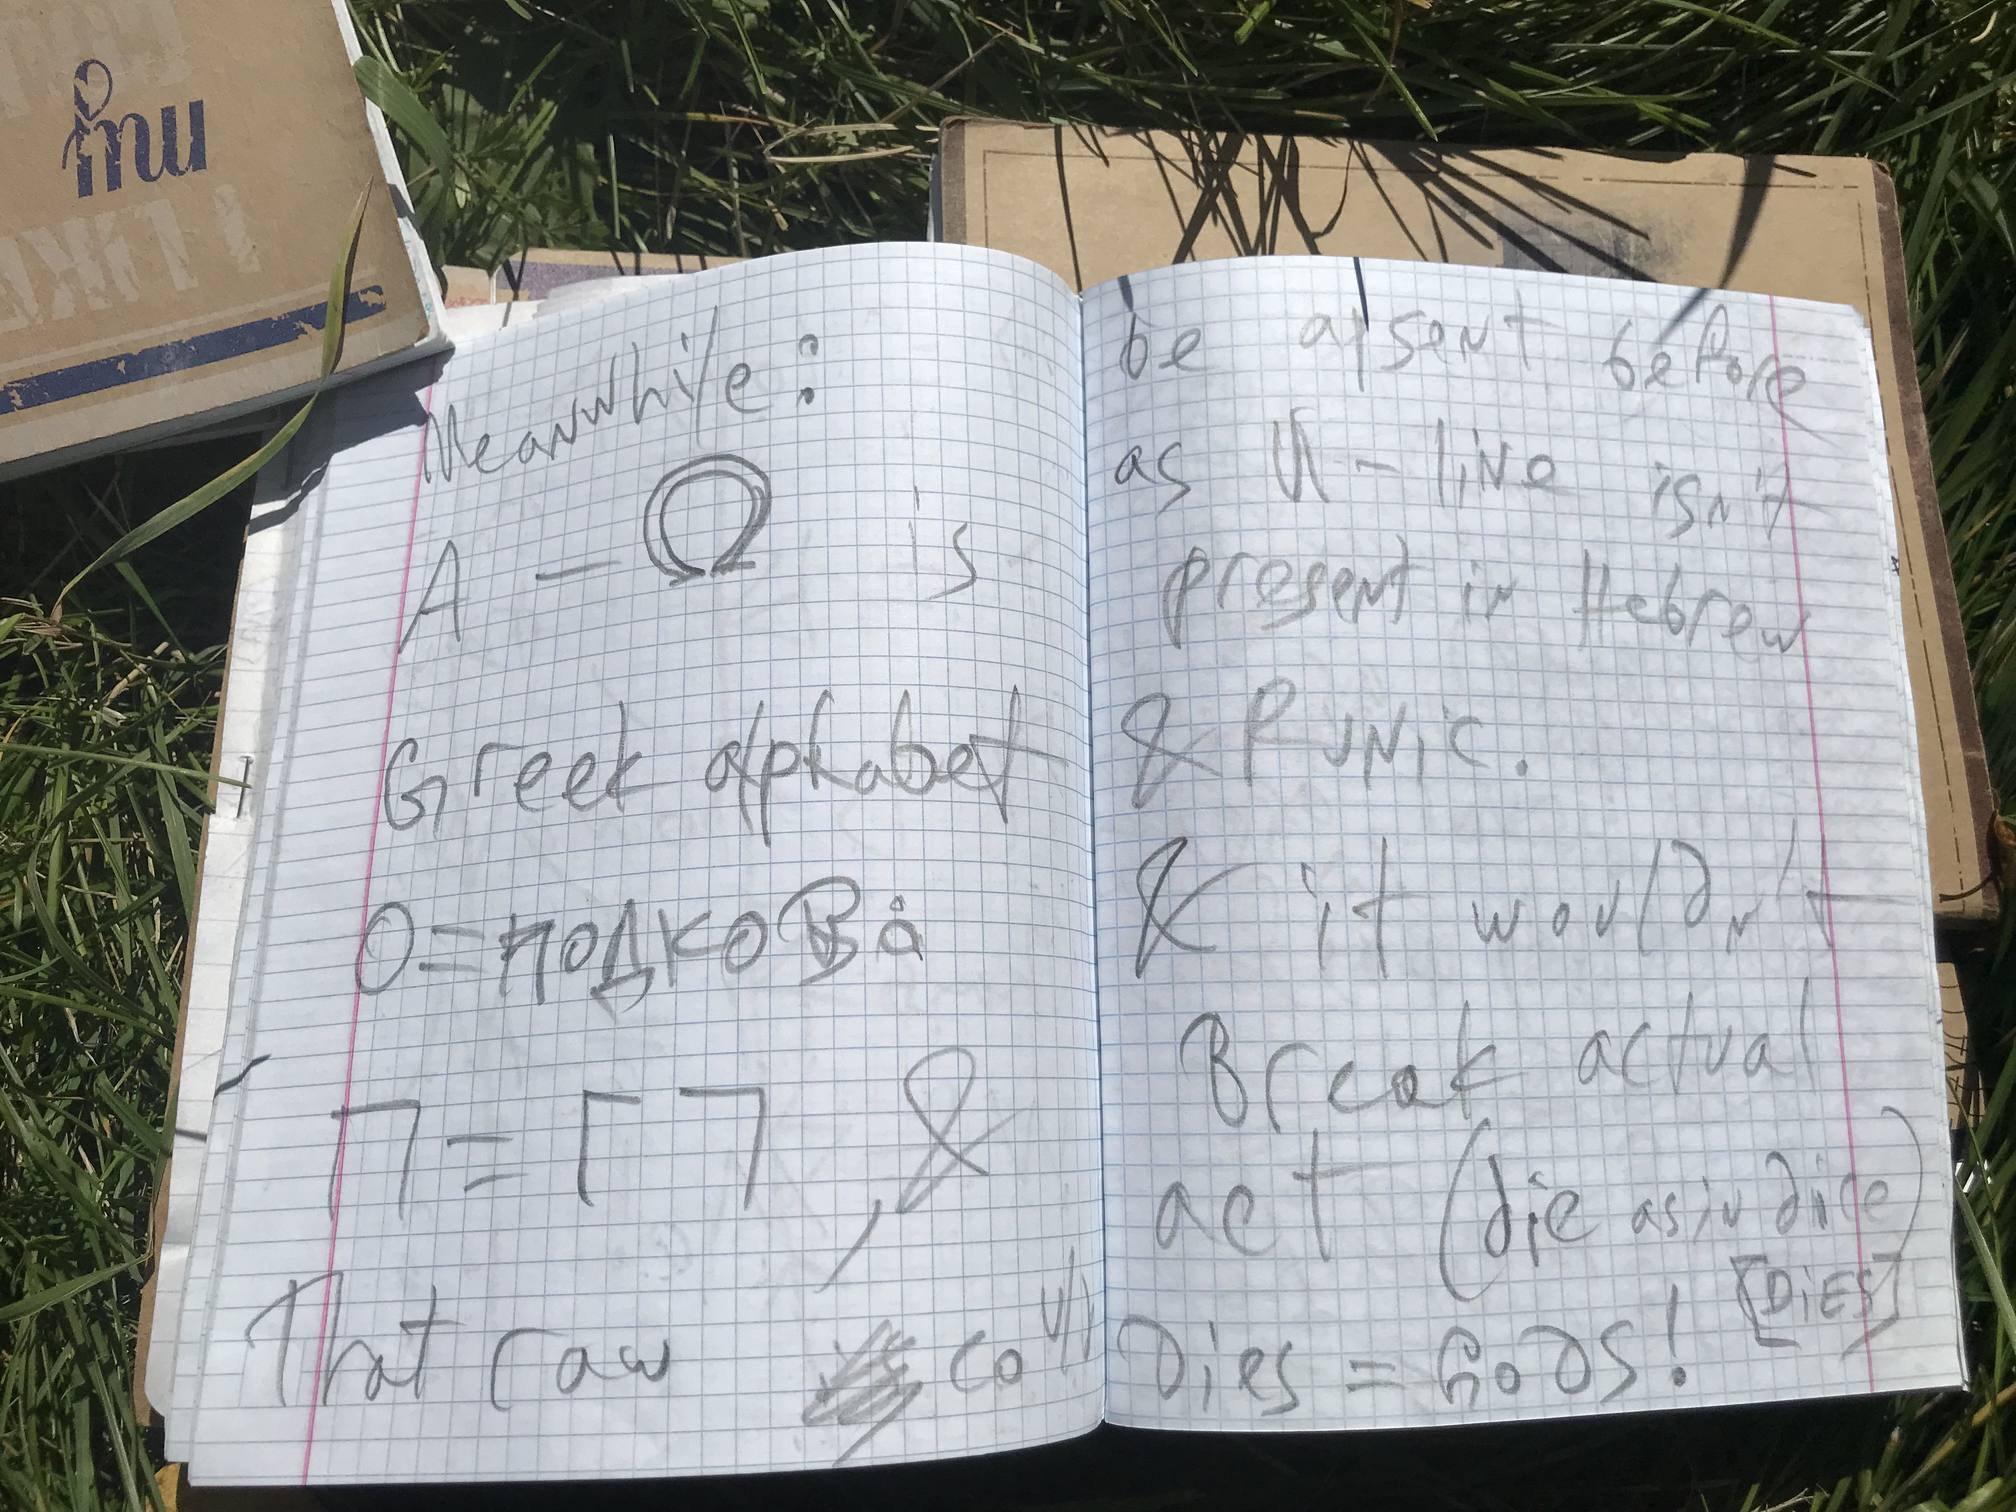 inu
Meanwhile:
A — Ω is
Greek alphabet
O=подкова
П = Г ㄱ , &
That raw coul
be apsent before
as U - line isn't
present in Hebrew
& Runic.
& it wouldn't
Break actual
act (die as in dice)
[DiES]
Dies = GoDS!